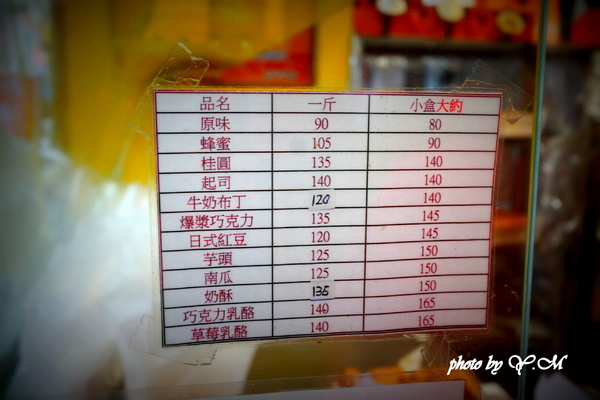 品名 一斤 小盒大約
原味 90 80
蜂蜜 105 90
桂圓 135 140
起司 140 140
牛奶布丁 120 140
爆漿巧克力 135 145
日式紅豆 120 145
芋頭 125 150
南瓜 125 150
奶酥 135 150
巧克力乳酪 140 165
草莓乳酪 140 165
photo by Y.M